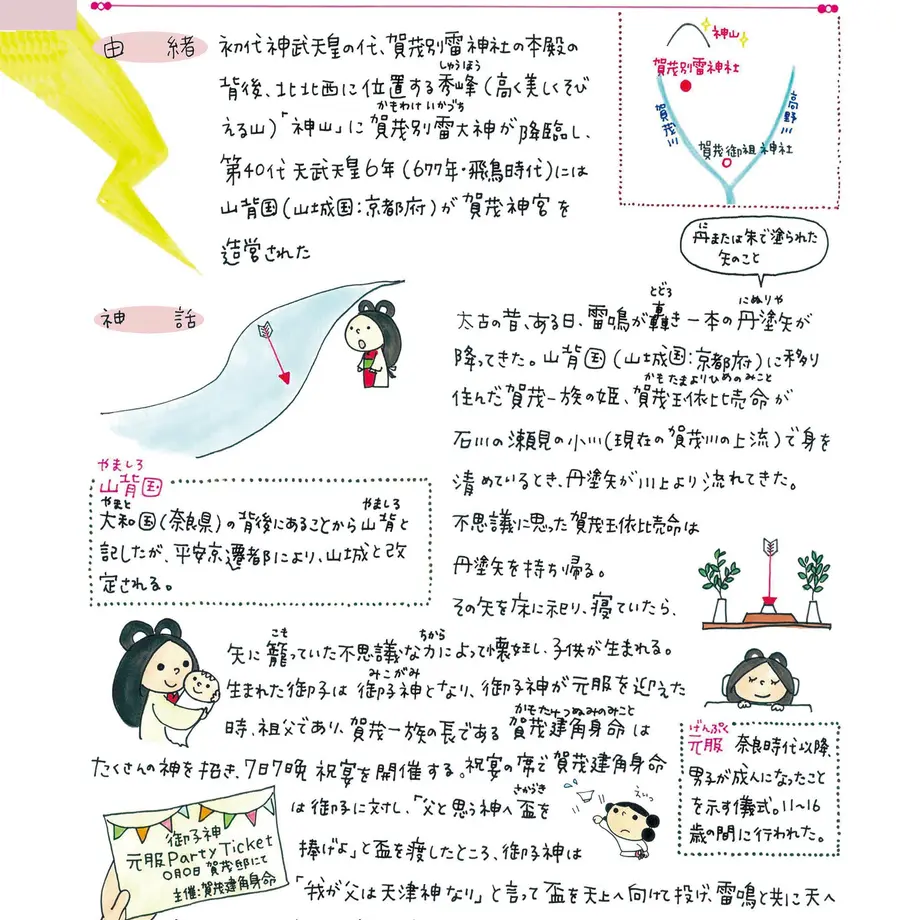 由緒
初代神武天皇の代、賀茂別雷神社の本殿の
しゅうほう
背後、北北西に位置する秀峰(高く美しくそび
かもわけいかづち
える山)「神山」に賀茂別雷大神が降臨し、
第40代天武天皇6年(677年・飛鳥時代)には
山背国(山城国:京都府)が賀茂神宮を
造営された
神山
賀茂別雷神社
賀茂川
高野川
賀茂御祖神社
に
丹または朱で塗られた
矢のこと
神話
とどろ
にぬりや
太古の昔、ある日、雷鳴が轟き一本の丹塗矢が
降ってきた。山背国(山城国:京都府)に移り
かもたまよりひめのみこと
住んだ賀茂一族の姫、賀茂玉依比売命が
石川の瀬見の小川(現在の賀茂川の上流)で身を
清めているとき、丹塗矢が川上より流れてきた。
不思議に思った賀茂玉依比売命は
丹塗矢を持ち帰る。
その矢を床に祀り、寝ていたら、
やましろ
山背国
やまと
やましろ
大和国(奈良県)の背後にあることから山背と
記したが、平安京遷都により、山城と改
定される。
こも
ちから
矢に籠っていた不思議な力によって懐妊し、子供が生まれる。
みこがみ
生まれた御子は御子神となり、御子神が元服を迎えた
かもたけつぬみのみこと
時、祖父であり、賀茂一族の長である賀茂建角身命は
たくさんの神を招き、7日7晩祝宴を開催する。祝宴の席で賀茂建角身命
さかづき
は御子に対し、「父と思う神へ盃を
捧げよ」と盃を渡したところ、御子神は
「我が父は天津神なり」と言って盃を天上へ向けて投げ、雷鳴と共に天へ
えいっ
げんぷく
元服 奈良時代以降、
男子が成人になったこと
を示す儀式。11〜16
歳の間に行われた。
御子神
元服Party Ticket
0月0日 賀茂邸にて
主催:賀茂建角身命